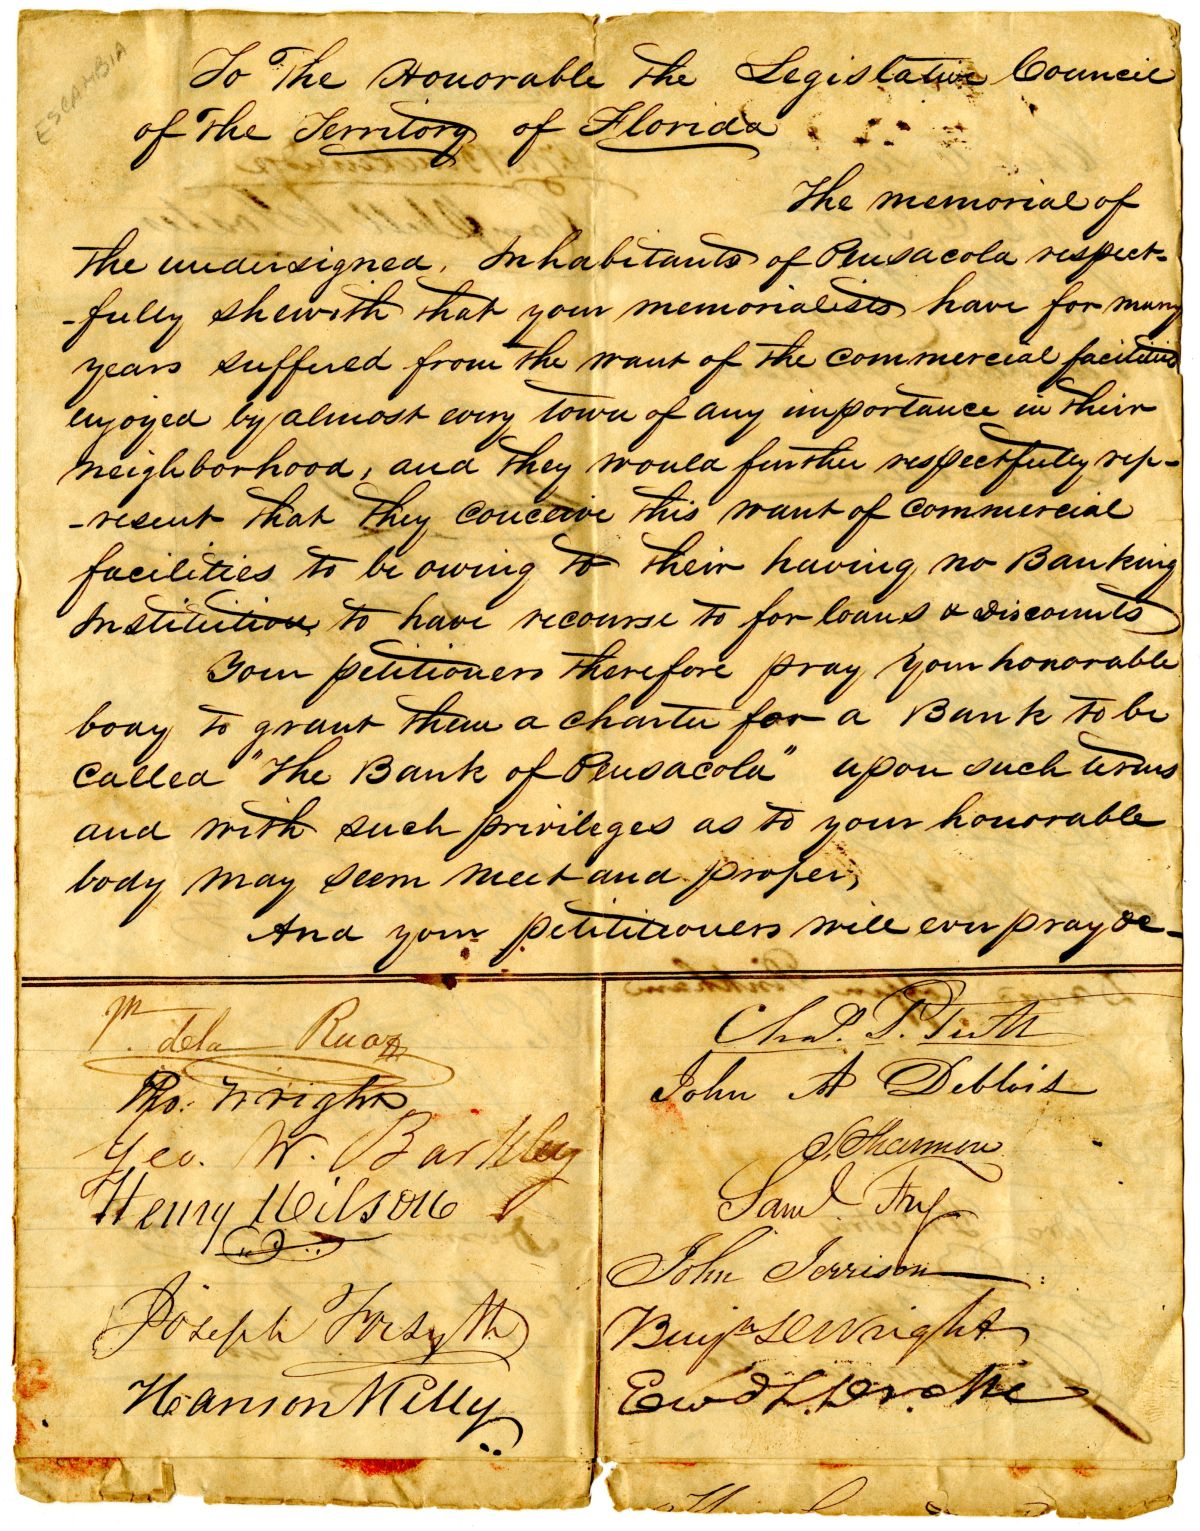 ESCAMBIA
To The Honorable the Legislative Council
of the Territory of Florida
The memorial of
the undersigned, Inhabitants of Pensacola respect-
-fully shewith that your memorialists have for many
years suffered from the want of the commercial facilities
enjoyed by almost every town of any importance in their
neighborhood, and they would further respectfully rep-
-resent that they conceive this want of commercial
facilities to be owing to their having no Banking
Institution to have recourse to for loans & discounts
Your petitioners therefore pray your honorable
body to grant them a charter for a Bank to be
called "The Bank of Pensacola" upon such terms
and with such privileges as to your honorable
body may seem meet and proper,
And your petititioners will ever pray &c-
dela Rua
Wright
Geo. W. Barkley
Henry Wilson
Joseph Forsyth
Hanson Kelly
Chas. P. Tutt
John A Deblois
Shannon
Saml. Fry
John Jerrison
Benjn D Wright
Ewd L. Drake